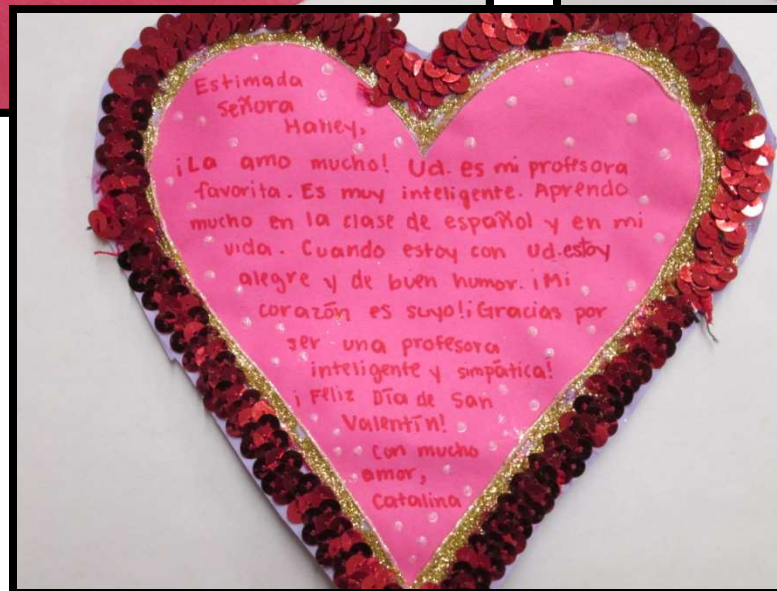 Estimada
Señora
Haney,
¡La amo mucho! Ud. es mi profesora
favorita. Es muy inteligente. Aprendo
mucho en la clase de español y en mi
vida. Cuando estoy con Ud. estoy
alegre y de buen humor. ¡Mi
corazón es suyo! ¡Gracias por
ser una profesora
inteligente y simpática!
¡Feliz Día de San
Valentín!
Con mucho
amor,
Catalina